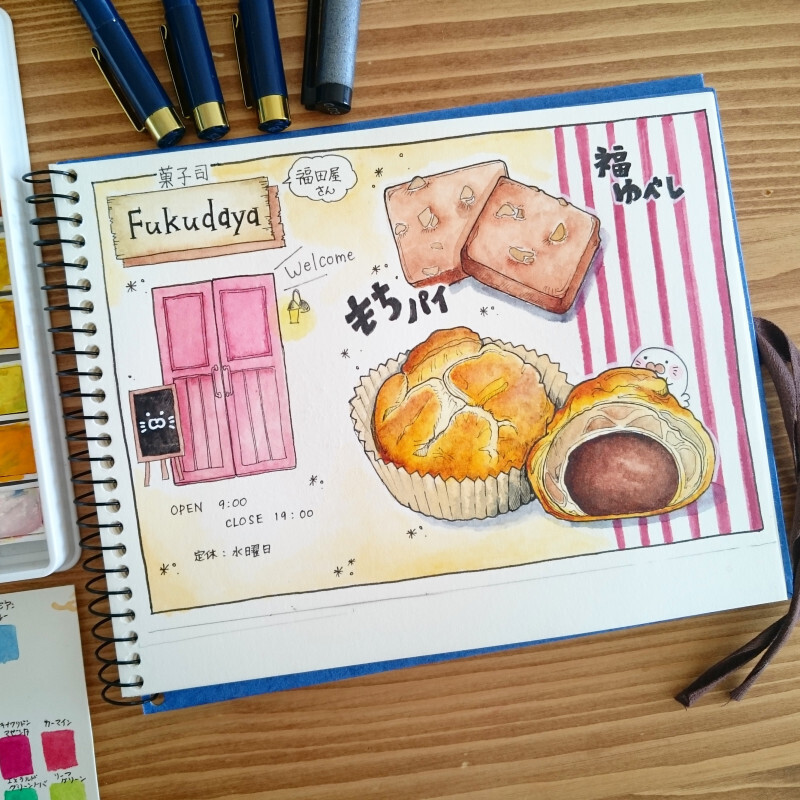 菓子司
Fukudaya
福田屋
さん
Welcome
福
ゆべし
もちパイ
OPEN 9:00
CLOSE 19:00
定休:水曜日
カーマイン
リーフ
グリーン